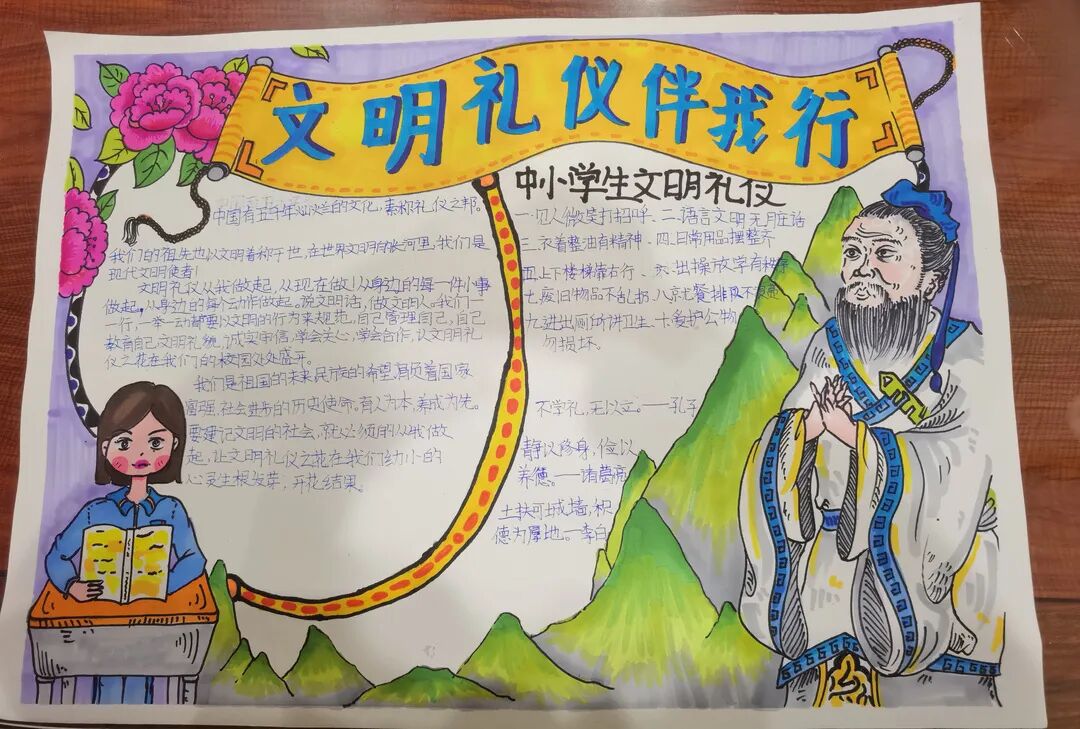 文明礼仪伴我行
中国有五千年灿烂的文化，素称礼仪之邦。
我们的祖先也以文明著称于世，在世界文明的长河里，我们是
现代文明使者！
文明礼仪从我做起，从现在做！从身边的每一件小事
做起。从身边的每个动作做起。说文明话，做文明人。我们一
一行，一举一动都要以文明的行为来规范，自己管理自己，自己
教育自己，文明礼貌，诚实守信，学会关心，学会合作，让文明礼
仪之花在我们的校园处处盛开。
我们是祖国的未来，民族的希望，肩负着国家
富强，社会进步的历史使命。育人为本，养成为先。
要建记文明的社会，就必须的从我做
起，让文明礼仪之花在我们幼小的
心灵生根发芽，开花结果。
中小学生文明礼仪
一.见人微笑打招呼、二.语言文明无脏话
三.衣着整洁有精神、四.日常用品摆整齐
五.上下楼梯靠右行、六.出操放学有秩序
七.废旧物品不乱扔.八.就餐排队不浪费
九.进出厕所讲卫生、十.爱护公物
勿损坏。
不学礼，无以立。——孔子
静以修身，俭以
养德。——诸葛亮
土扶可城墙，积
德为厚地。—李白